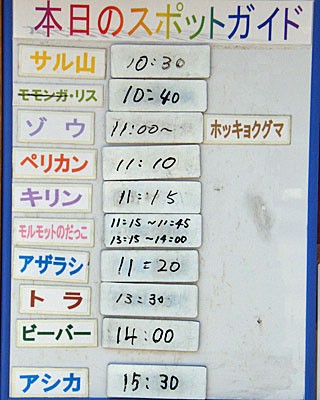 本日のスポットガイド
サル山 10:30
モモンガ・リス 10:40
ゾウ 11:00~ ホッキョクグマ
ペリカン 11:10
キリン 11:15
モルモットのだっこ 11:15~11:45
13:15~14:00
アザラシ 11:20
トラ 13:30
ビーバー 14:00
アシカ 15:30